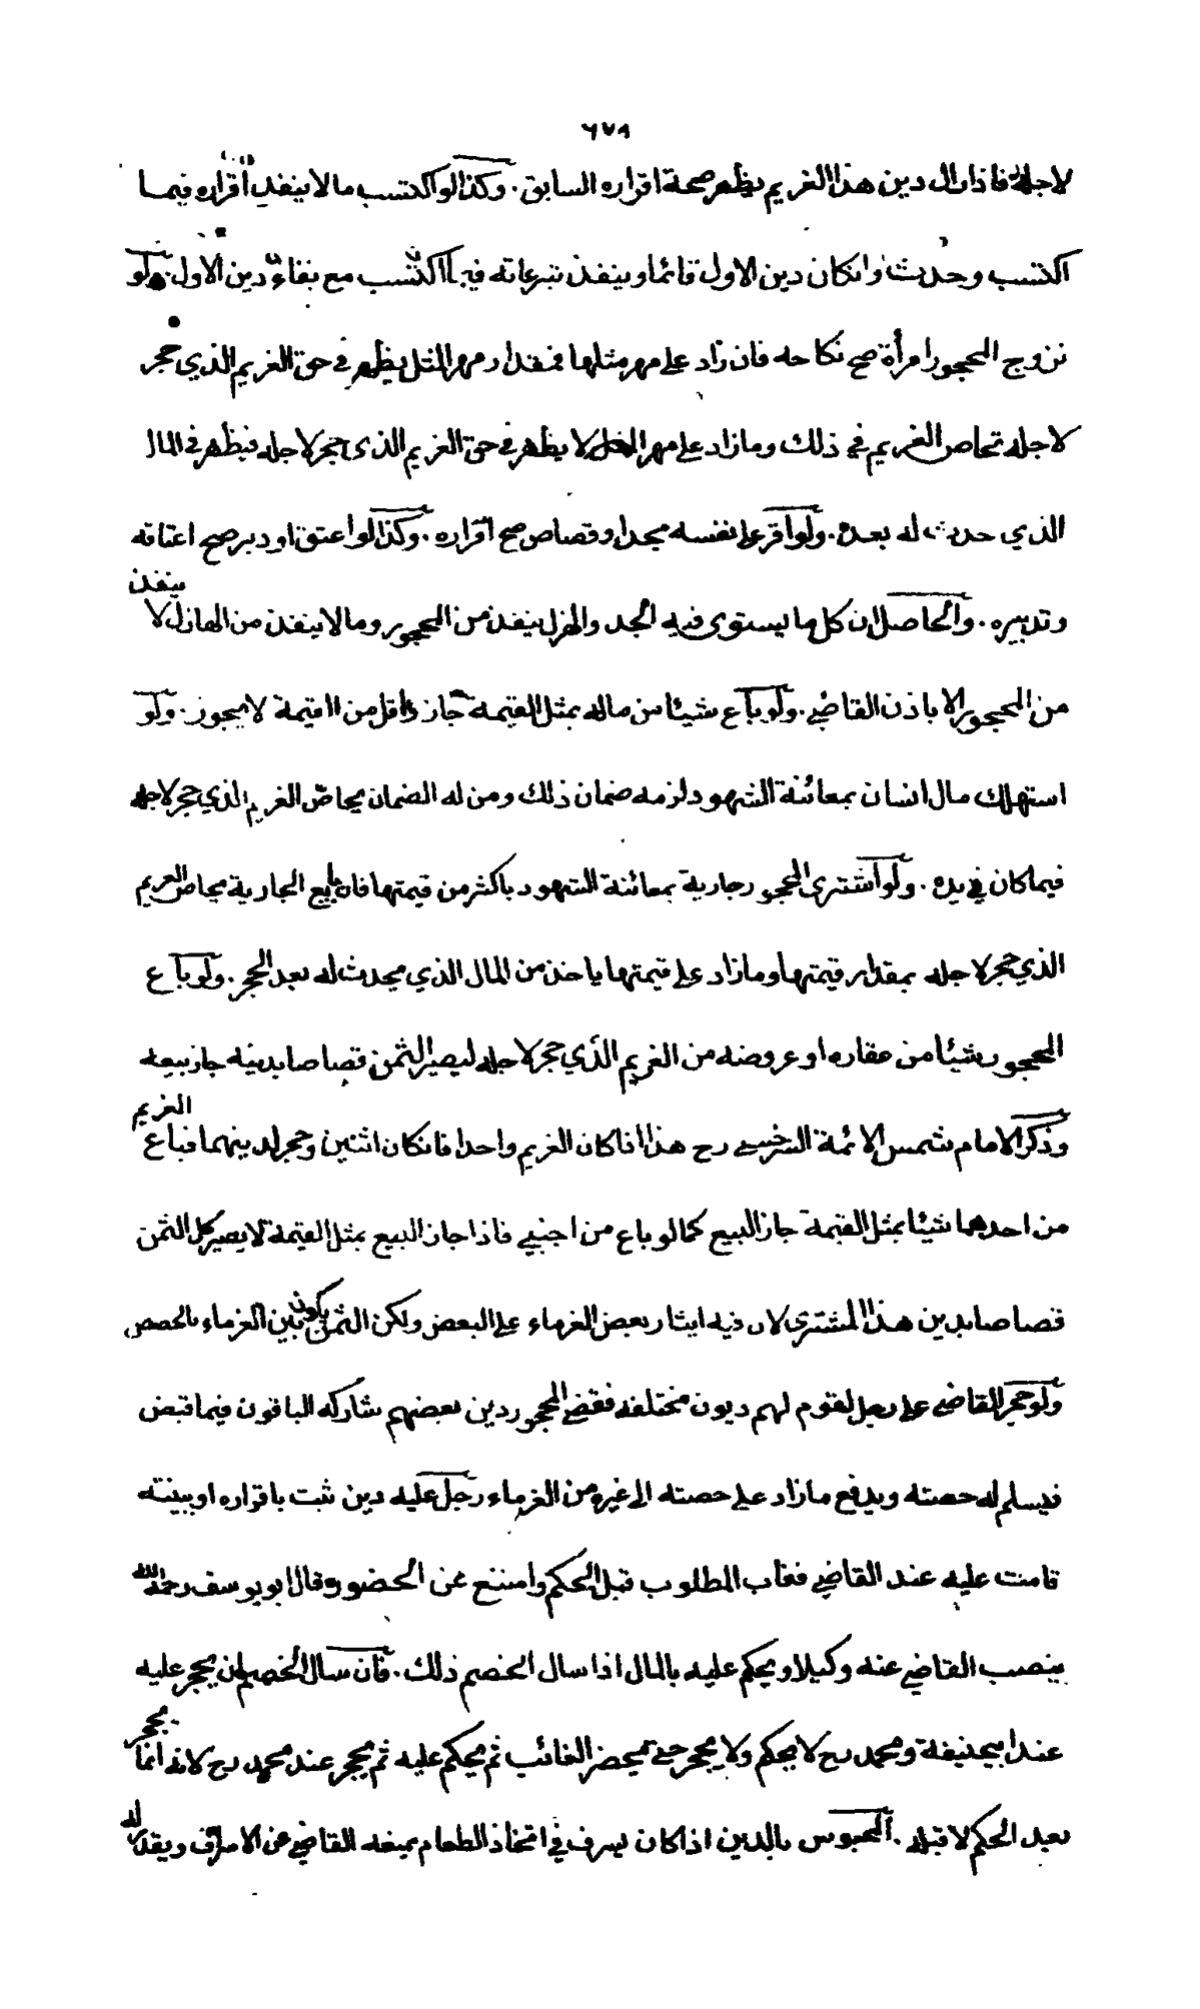 ٦٧٨
لاجله فاذا زال دين هذا الغريم يظهر صحة اقراره السابق . وكذا لو اكتسب مالا ينفذ اقراره فيما
اكتسب وحدث وانكان دين الاول قائما وينفذ تبرعاته فيما اكتسب مع بقاء دين الاول . ولو
تزوج المحجور امرأة صح نكاحه فان زاد على مهر مثلها فمقدار مهر المثل يظهر في حق الغريم الذي حجر
لاجله تحاص الغريم في ذلك وما زاد على مهر المثل لا يظهر في حق الغريم الذى حجر لاجله فيظهر في المال
الذي حدث له بعده . ولو اقر على نفسه بحد او قصاص صح اقراره . وكذا لو اعتق او دبر صح اعتاقه
وتدبيره . والحاصل ان كل ما يستوى فيه الجد والهزل ينفذ من المحجور وما لا ينفذ من الهازل لا ينفذ
من المحجور الا باذن القاضي . ولو باع شيئا من ماله بمثل القيمة جاز واقل من القيمة لا يجوز . ولو
استهلك مال انسان بمعائنة الشهود لزمه ضمان ذلك ومن له الضمان يحاصّ الغريم الذي حجر لاجله
فيما كان في يده . ولو اشترى المحجور جارية بمعائنة الشهود باكثر من قيمتها فان بايع الجارية يحاص الغريم
الذي حجر لاجله بمقدار قيمتها وما زاد على قيمتها ياخذ من المال الذي يحدث له بعد الحجر . ولو باع
المحجور شيئا من عقاره او عروضه من الغريم الذي حجر لاجله ليصير الثمن قصاصا بدينه جاز بيعه
وذكر الامام شمس الائمة السرخسي رح هذا اذا كان الغريم واحدا فانكان اثنين وحجر لدينهما فباع الغريم
من احدهما شيئا بمثل القيمة جاز البيع كما لو باع من اجنبي فاذا جاز البيع بمثل القيمة لا يصير كل الثمن
قصاصا بدين هذا المشتري لان فيه ايثار بعض الغرماء على البعض ولكن الثمن يكون بين الغرماء بالحصص
ولو حجر القاضي على رجل لقوم لهم ديون مختلفة فقضى المحجور دين بعضهم شاركه الباقون فيما قبض
فيسلم له حصته ويدفع ما زاد على حصته الى غيره من الغرماء رجل عليه دين ثبت باقراره او ببينته
قامت عليه عند القاضي فغاب المطلوب قبل الحكم وامتنع عن الحضور وقال ابو يوسف رحمه الله
ينصب القاضي عنه وكيلا ويحكم عليه بالمال اذا سال الخصم ذلك . فان سال الخصم ان يحجر عليه
عند ابيحنيفة ومحمد رح لا يحكم ولا يحجر حتى يحضر الغائب ثم يحكم عليه ثم يحجر عند محمد رح لانه انما يحجر
بعد الحكم لا قبله . المحبوس بالدين اذا كان يسرف في اتخاذ الطعام يمنعه القاضي عن الاسراف ويقدر له